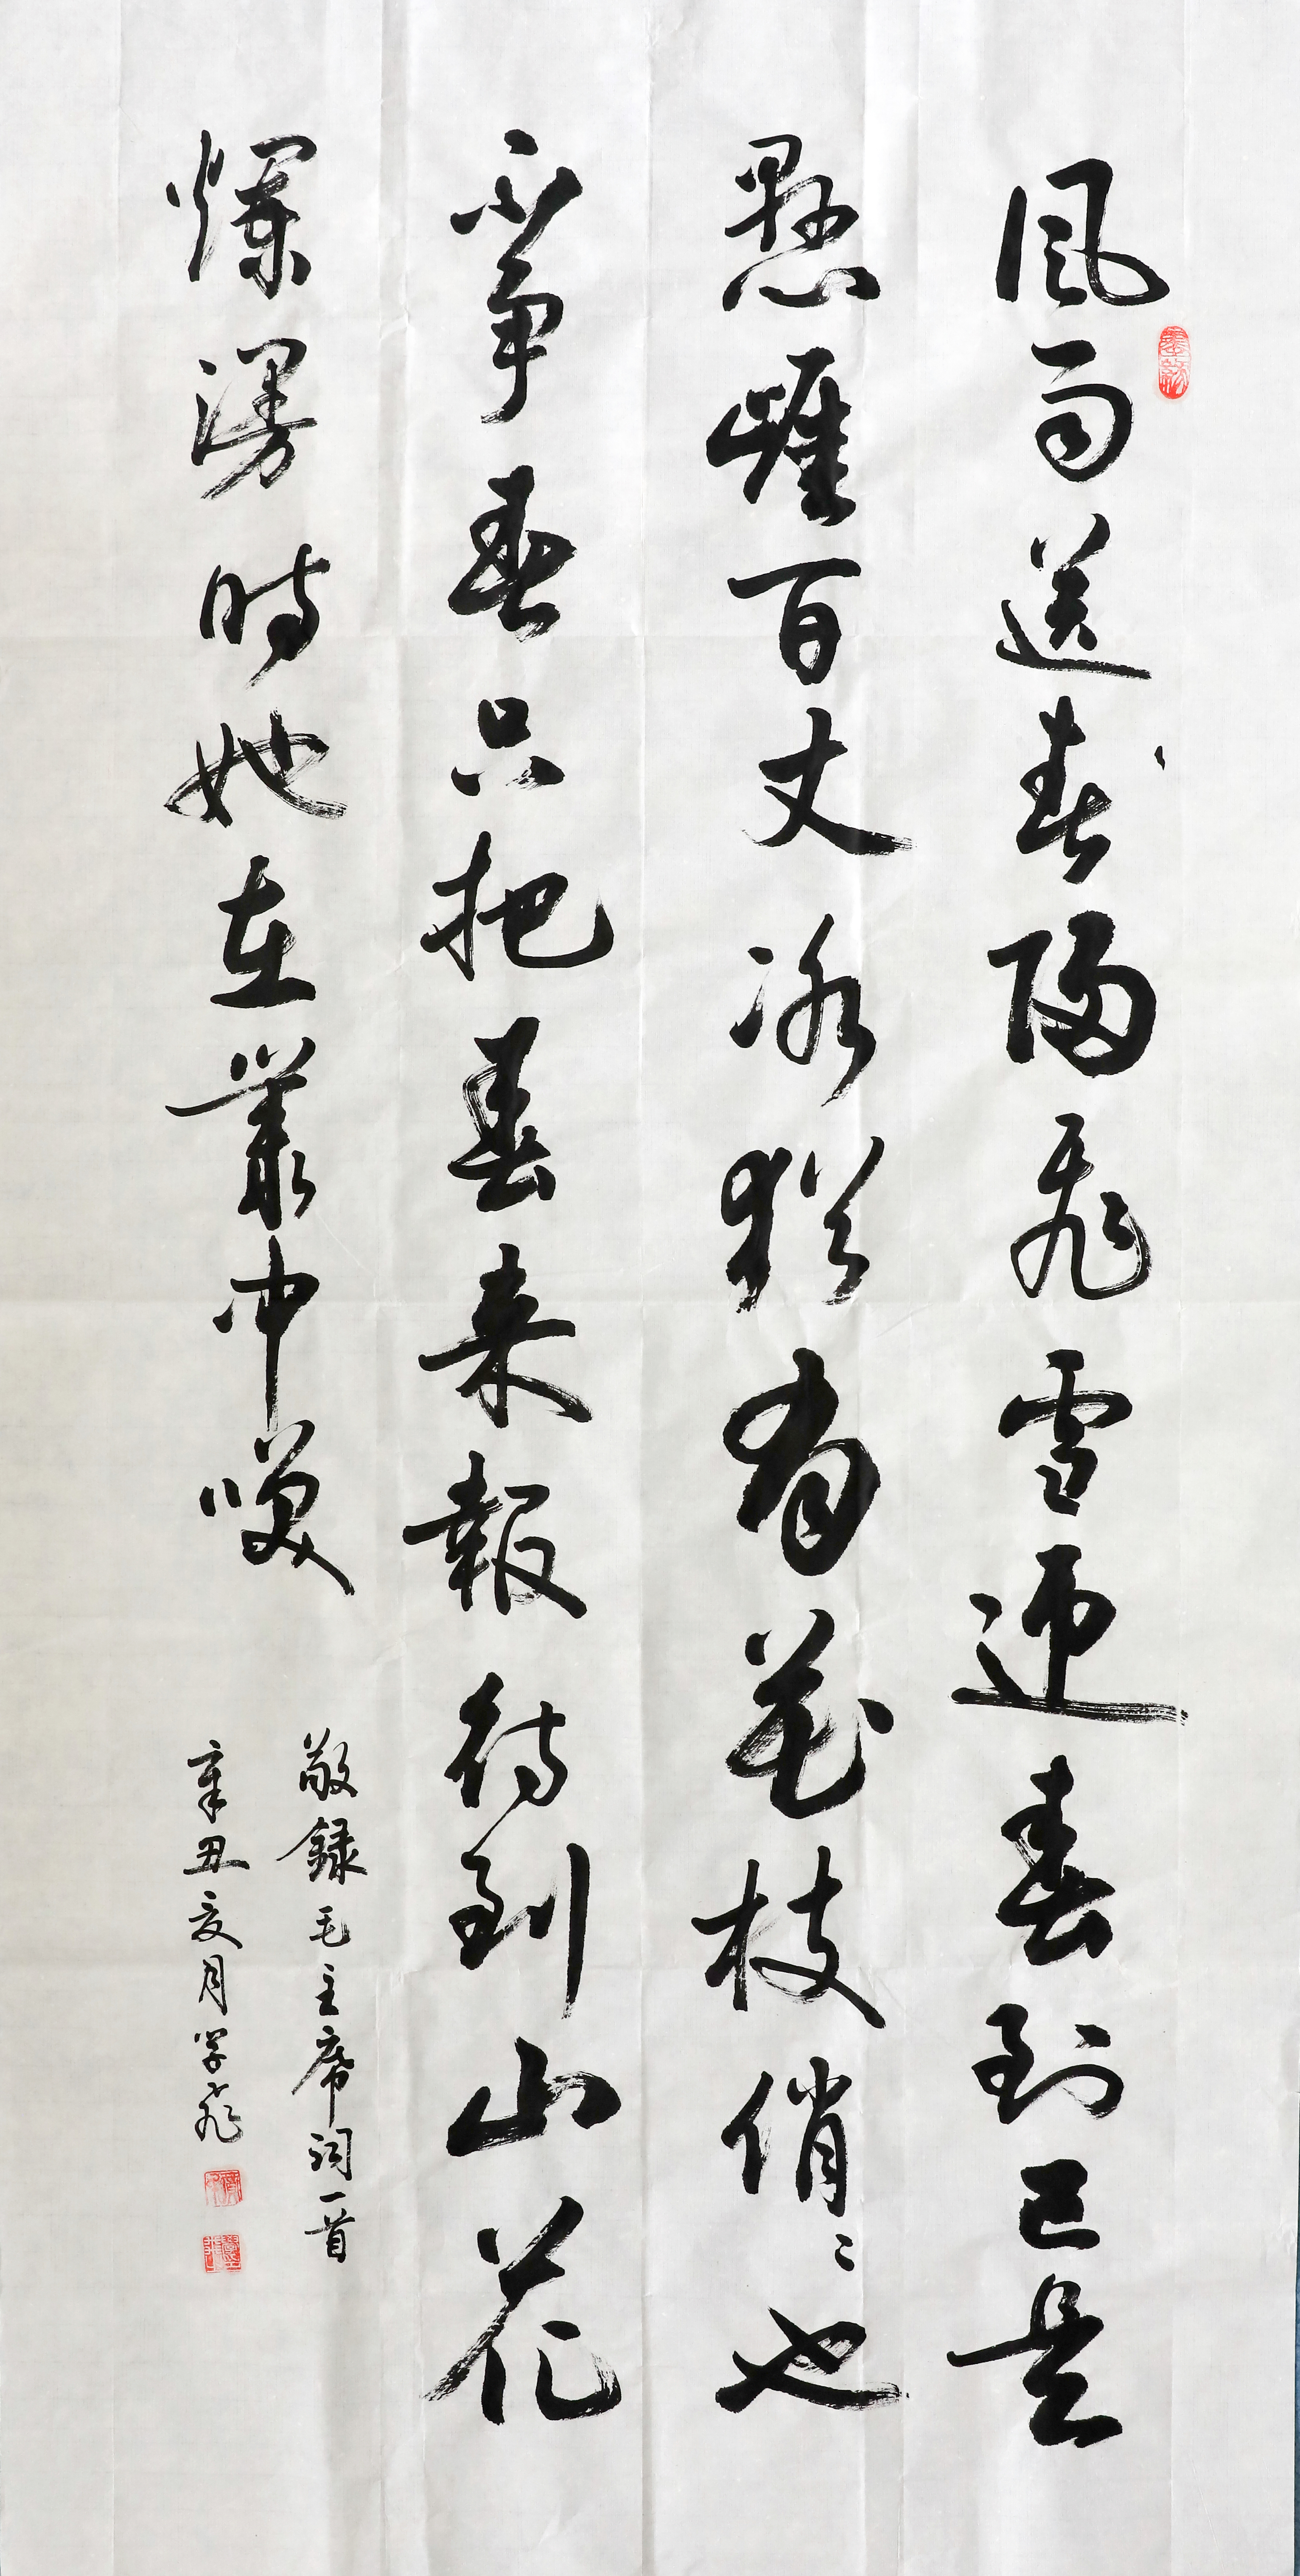 風雨送春歸飛雪迎春到已是
懸崖百丈冰猶有花枝俏〻也
不爭春只把春来報待到山花
爛漫時她在叢中咲
敬録毛主席词一首
辛丑夏月学飛